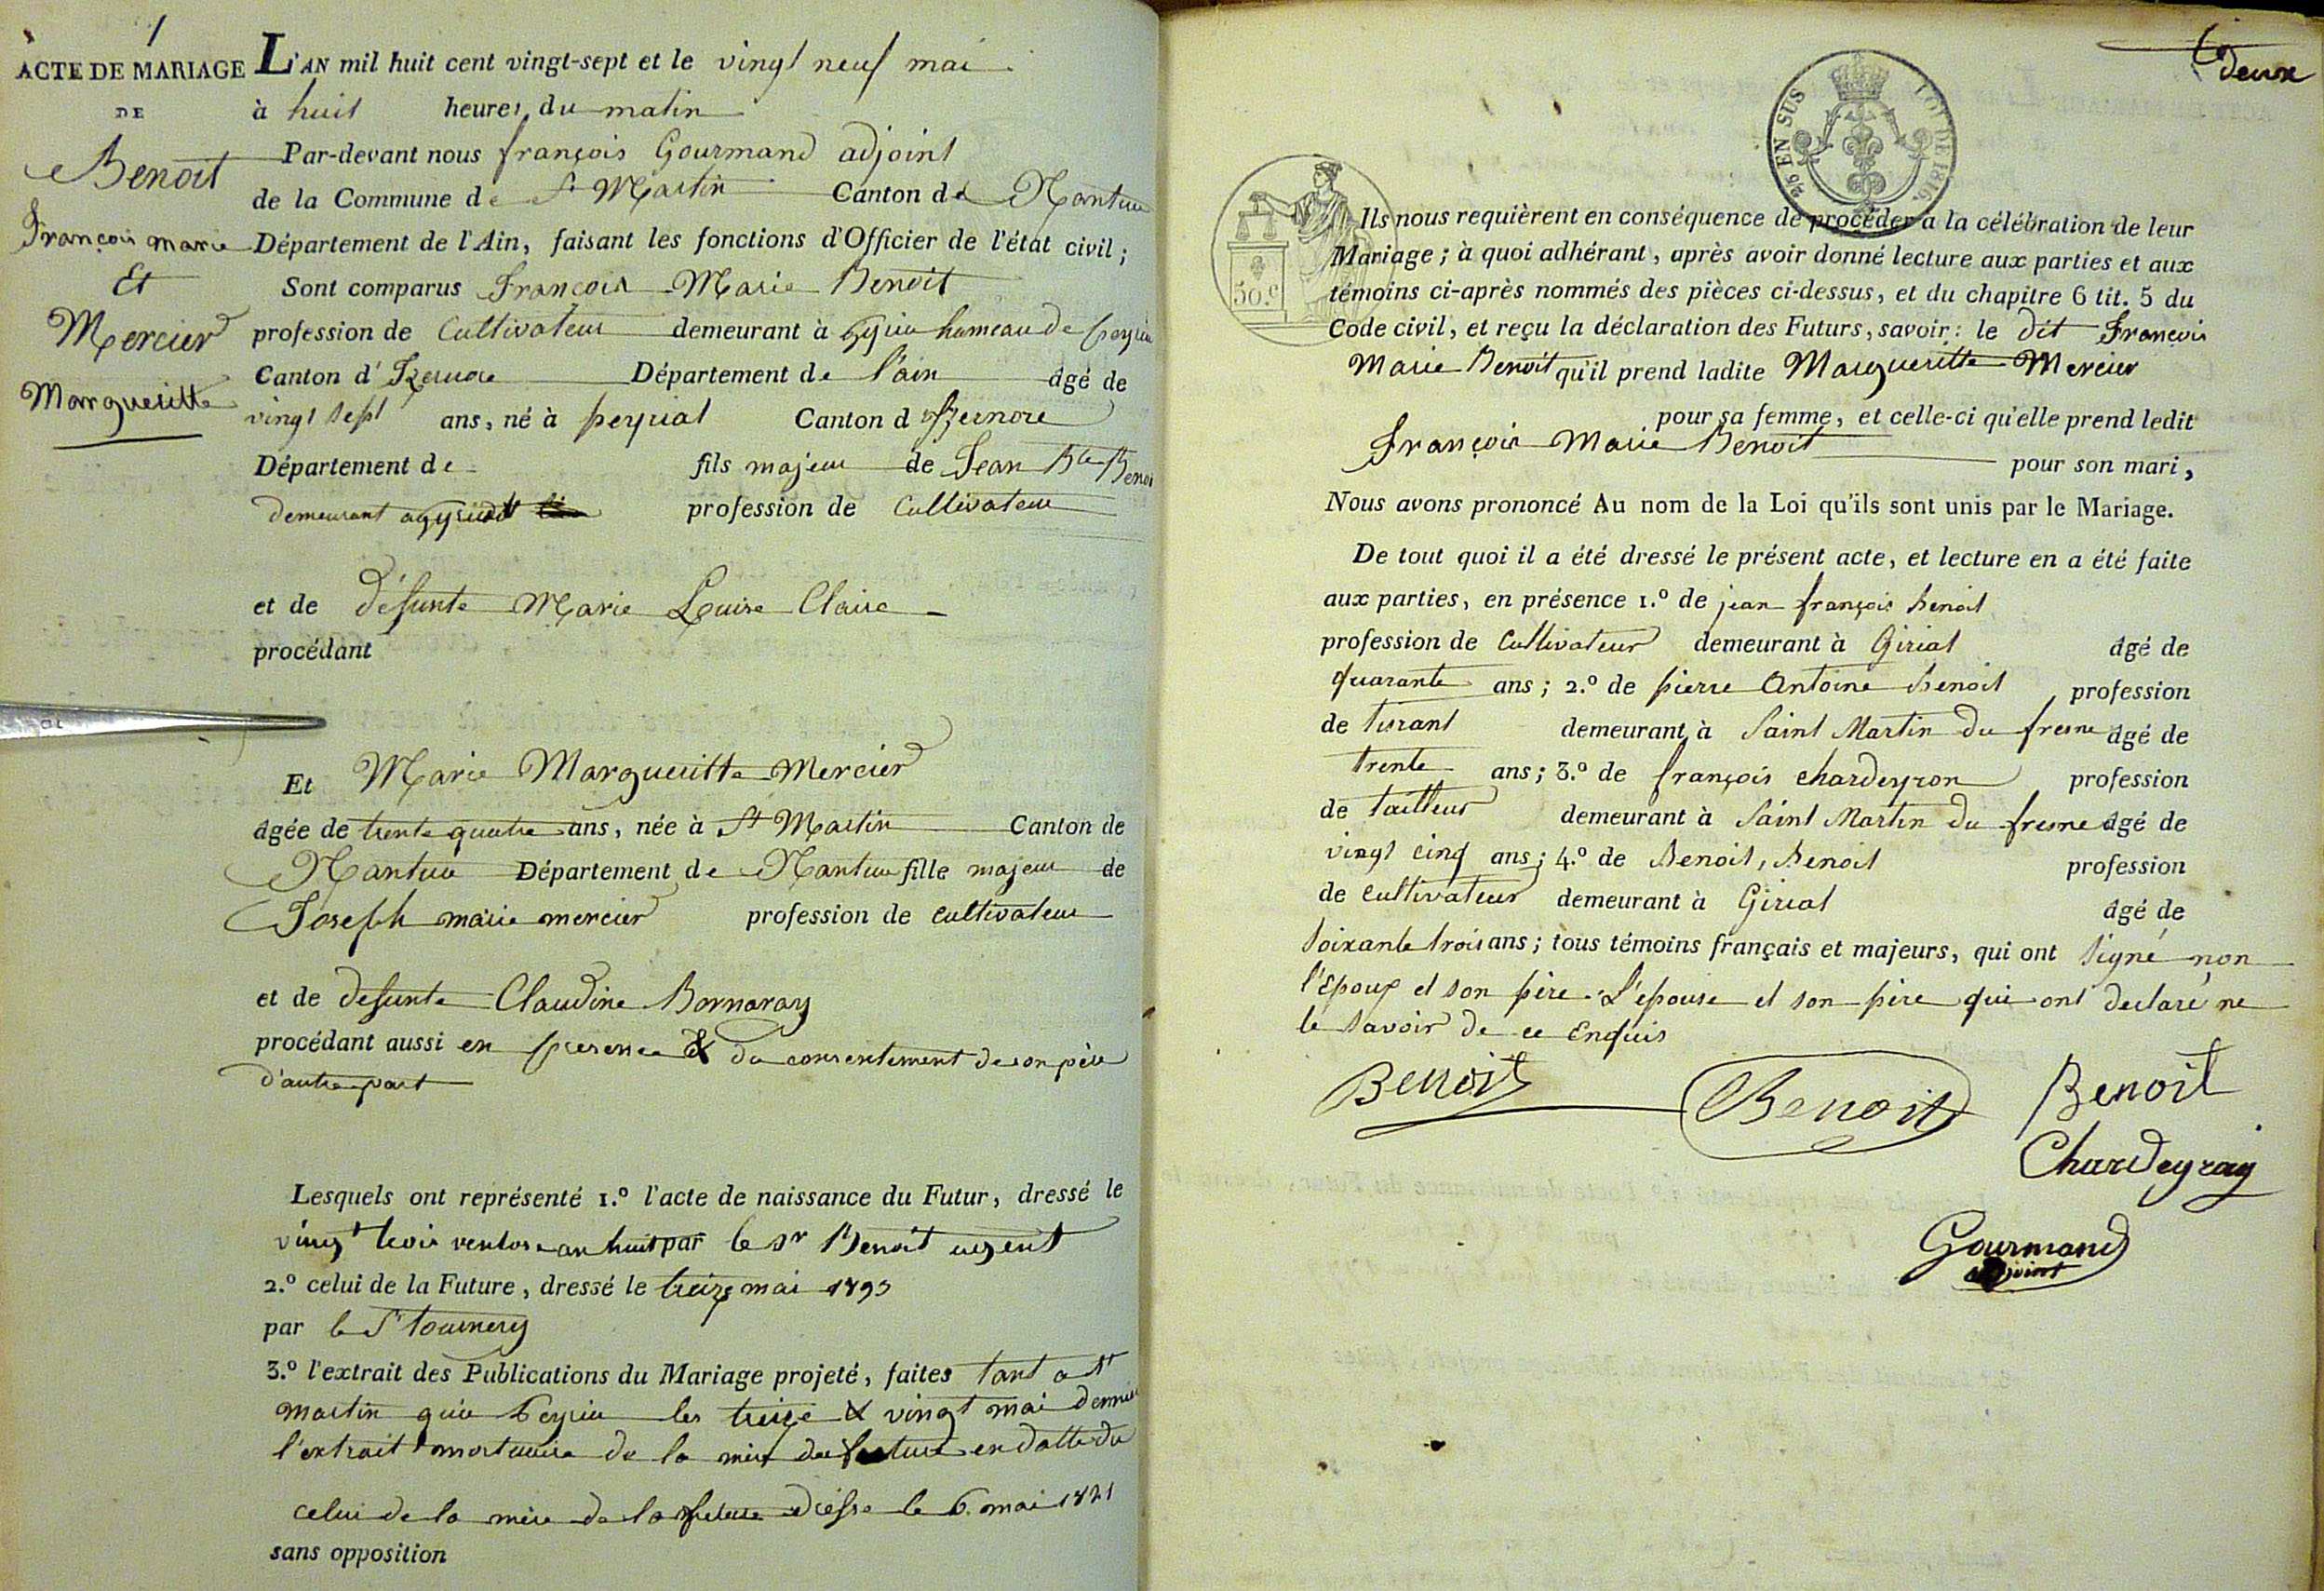 1
ACTE DE MARIAGE
DE
Benoit
François marie
Et
Mercier
Margueritte
L'AN mil huit cent vingt-sept et le vingt neuf mai
à huit heures du matin
Par-devant nous françois Gourmand adjoint
de la Commune de St Martin Canton de Nantua
Département de l'Ain, faisant les fonctions d'Officier de l'état civil;
Sont comparus François Marie Benoit
profession de Cultivateur demeurant à hameau de
Canton d' Izernore Département de l'ain âgé de
vingt sept ans, né à peyriat Canton d izernore
Département de fils majeur de Jean Bte Benoi
demeurant profession de Cultivateur
et de défunte Marie Louise Claire
procédant
Et Marie Margueritte Mercier
âgée de trente quatre ans, née à St Martin Canton de
Nantua Département de Nantua fille majeur de
Joseph marie mercier profession de cultivateur
et de defunte Claudine Bornaray
procédant aussi en presence & du consentement de son père
d'autre part
Lesquels ont représenté 1.º l'acte de naissance du Futur, dressé le
vingt trois ventose an huit par le sr Benoit agent
2.º celui de la Future, dressé le treize mai 1793
par le Sr tournery
3.º l'extrait des Publications du Mariage projeté, faites tant a St
martin qu'a les treize & vingt mai dernier
l'extrait mortuaire de la mere du future en datte du
celui de la mère de la future dressé le 6. mai 1821
sans opposition
deux
25 EN SUS LOI DE 1816.
50.c
Ils nous requièrent en conséquence de procéder à la célébration de leur
Mariage; à quoi adhérant, après avoir donné lecture aux parties et aux
témoins ci-après nommés des pièces ci-dessus, et du chapitre 6 tit. 5 du
Code civil, et reçu la déclaration des Futurs, savoir: le dit François
Marie Benoit qu'il prend ladite Margueritte Mercier
pour sa femme, et celle-ci qu'elle prend ledit
François Marie Benoit
pour son mari,
Nous avons prononcé Au nom de la Loi qu'ils sont unis par le Mariage.
De tout quoi il a été dressé le présent acte, et lecture en a été faite
aux parties, en présence 1.º de jean françois benoit
profession de Cultivateur demeurant à Giriat âgé de
quarante ans; 2.º de pierre Antoine benoit profession
de tisrant demeurant à Saint Martin du fresne âgé de
trente ans; 3.º de françois chardeyron profession
de tailleur demeurant à Saint Martin du fresne âgé de
vingt cinq ans; 4.º de Benoit, Benoit profession
de cultivateur demeurant à Giriat âgé de
soixante trois ans; tous témoins français et majeurs, qui ont signé non
l'époux et son père. L'epouse et son père qui ont declaré ne
le savoir de ce Enquis
Benoit
Benoit
Benoit
Chardeyron
Gourmand
adjoint